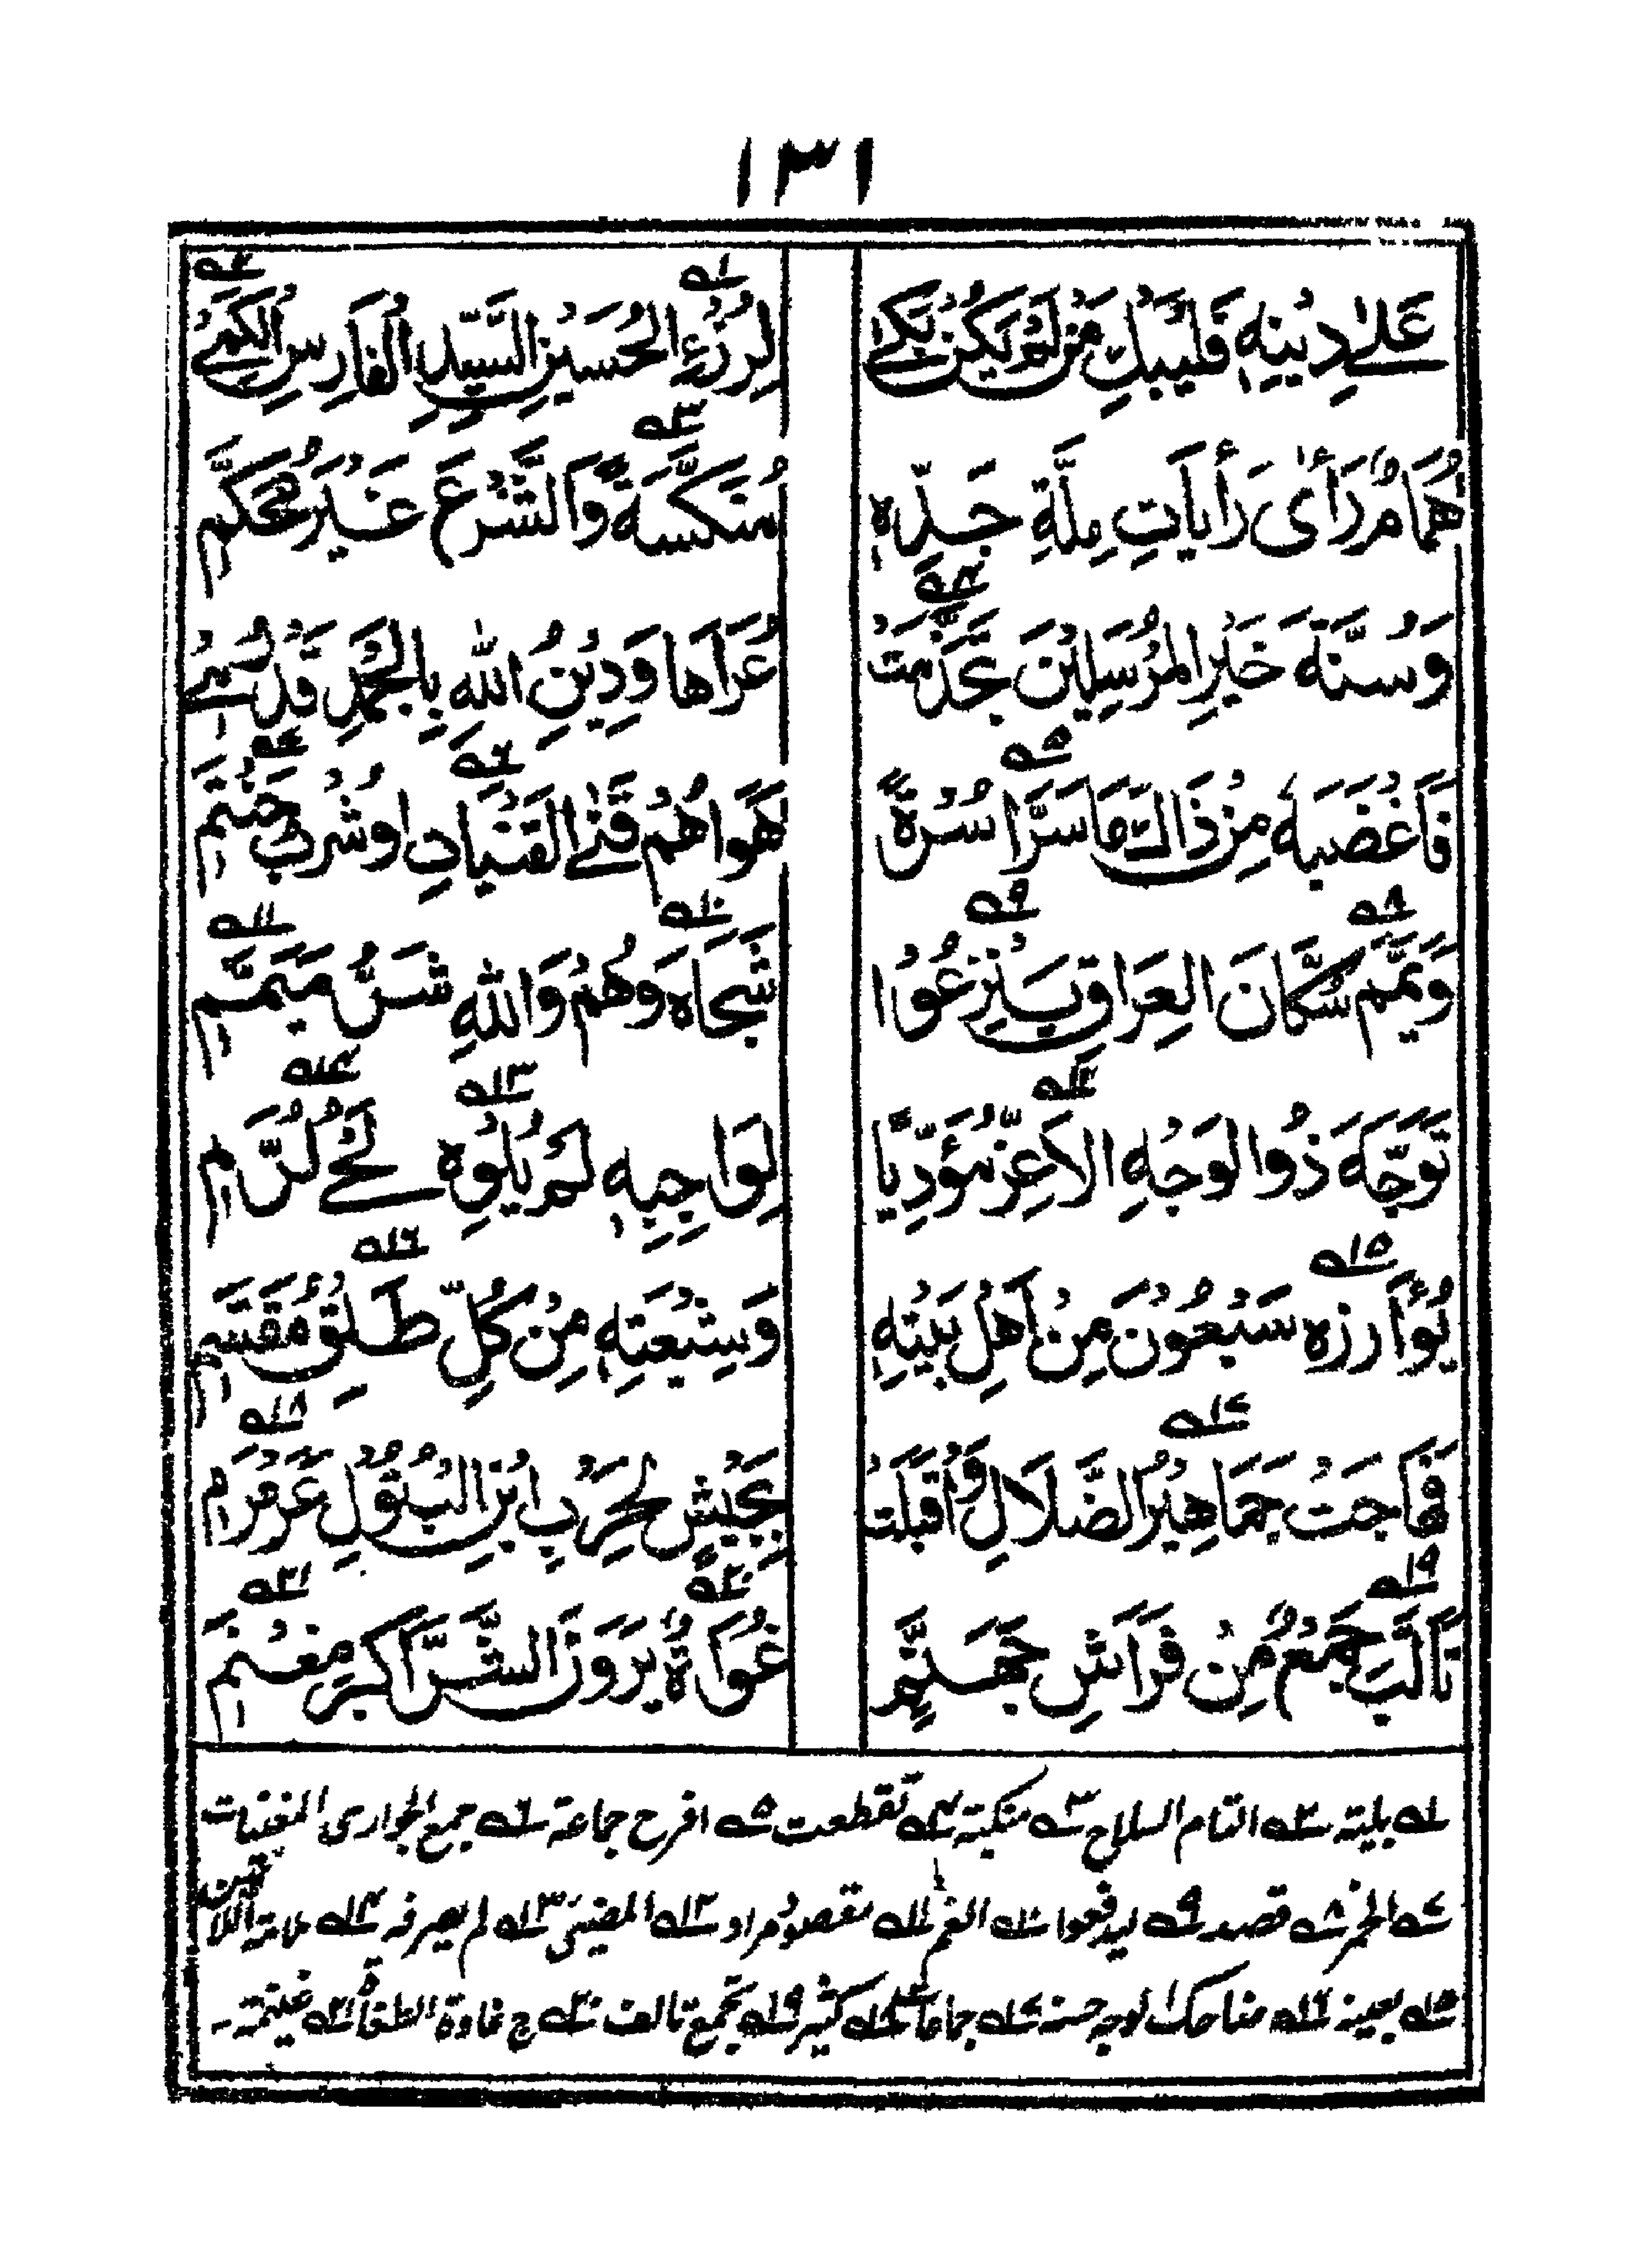 ١٣١
عَلٰے دِيْنِهٖ فَلْيَبْكِ مَنْ لَمْ يَكُنْ بَكٰے لِرُزْءِ الْحُسَيْنِ السَّيِّدِ الْفَارِسِ الْكَمِيْ
هُمَامٌ رَأٰى رَأيَاتِ مِلَّةِ جَدِّهٖ مُنَكَّسَةً وَالشَّرْعَ غَيْرَ مُحَكَّمٖ
وَسُنَّةَ خَيْرِ الْمُرْسَلِيْنَ تَجَذَّمَتْ عُرَاهَا وَدِيْنُ اللهِ بِالْجُمْدِ قَدْ
فَاَغْضَبَهٗ مِنْ ذَاكَ مَا سَرَّ اُسْرَةً هَوَاهُمْ الْقَيْنَاتِ اوْشُرْبِ حَنْتَمٖ
وَيَمَّمَ سُكَّانَ الْعِرَاقِ لِيَنْزِعُوْا شَجَاهُ وَهُمْ وَاللهِ شَرُّ مُيَمَّمٖ
تَوَجَّهَ ذُوا لْوَجْهِ الْاَغَرِّ مُؤَدِّيًا لِوَاجِبِهٖ لَمْ يُلْوِهٖ لَحْیُ لُوَّمٖ
يُوَأزِرُهٗ سَبْعُوْنَ مِنْ اَهْلِ بَيْتِهٖ وَشِيْعَتِهٖ مِنْ كُلِّ طَلْقٍ مُقَسَّمٖ
فَهَاجَتْ جَمَاهِيْرُ الضَّلَالِ وَاَقْبَلَتْ بِجَيْشٍ لِحَرْبِ ابْنِ الْبَتُوْلِ عَرَمْرَمٖ
تَاَلَّبَ جَمْعٌ مِنْ فَرَاشِ جَهَنَّمٖ غُوَاةٌ يَرَوْنَ الشَّرَّ اَكْبَرَ مَغْنَمٖ
١ بلیتہ ٢ التام السلاح ٣ منکبتہ ٤ تقطعت ٥ افرح جماعة ٦ جمع الجواری المغنیات
٧ الخمر ٨ قصد ٩ لیدفعوا ١٠ الغم ١١ مقصود مراد ١٢ المضیئ ١٣ لم یصرفہ ١٤ ملامة اللائمین
١٥ یعینہ ١٦ ضاحک الوجہ حسنہ ١٧ جماعات ١٨ کثیر ١٩ تجمع تالف ٢٠ ج غاوة ٢١ غنیمة۔